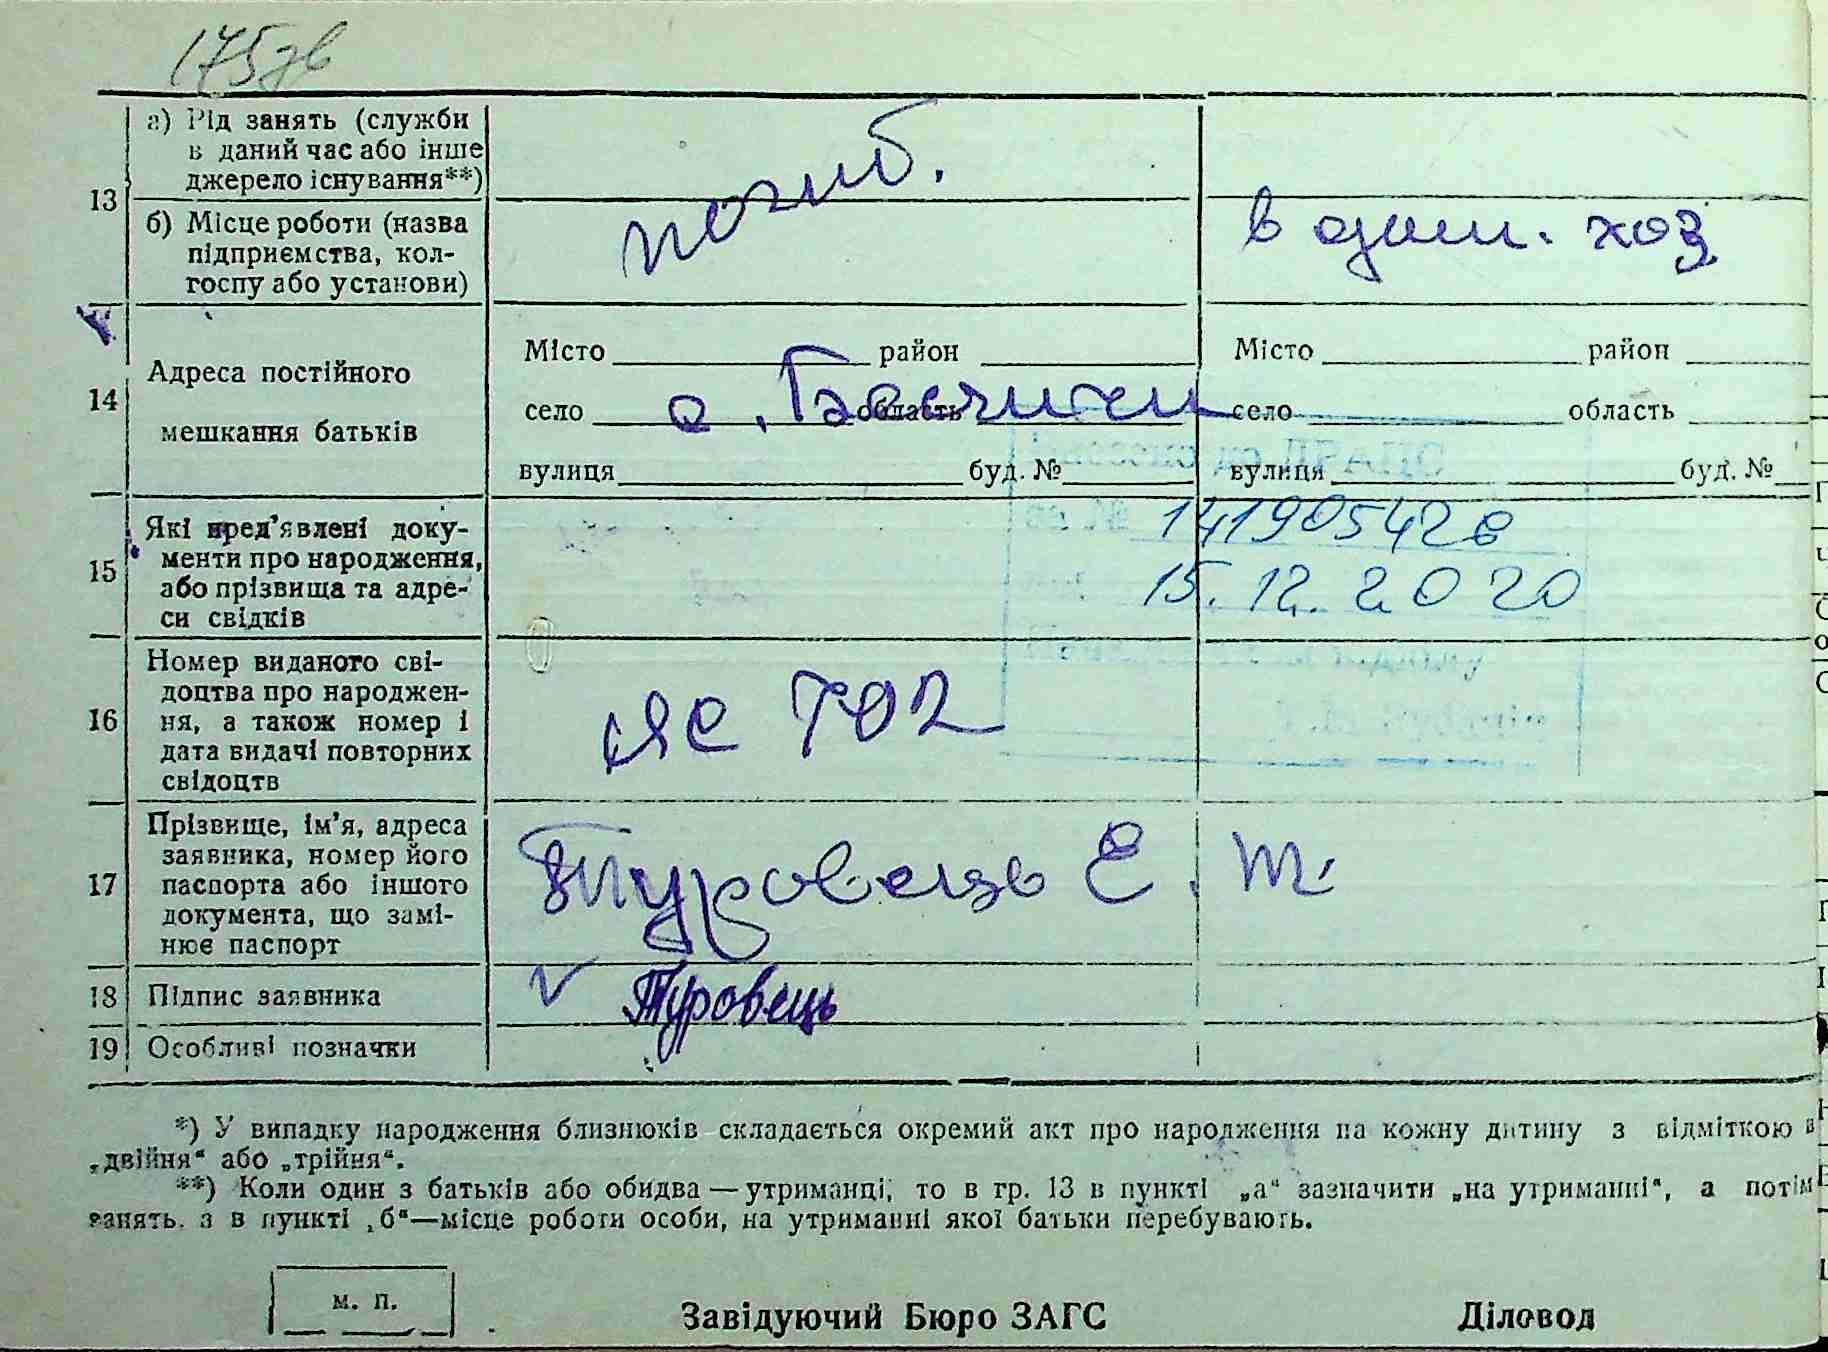 175зв
13
а) Рід занять (служби
в даний час або інше
джерело існування**)
погиб.
б) Місце роботи (назва
підприємства, кол-
госпу або установи)
в один. хоз
14
Адреса постійного
мешкання батьків
Місто район
Місто район
село область
село область
вулиця буд. №
вулиця буд. №
15
Які пред’явлені доку-
менти про народження,
або прізвища та адре-
си свідків
141905426
15.12.2020
16
Номер виданого сві-
доцтва про народжен-
ня, а також номер і
дата видачі повторних
свідоцтв
702
17
Прізвище, ім’я, адреса
заявника, номер його
паспорта або іншого
документа, що замі-
нює паспорт
Туровець Є. Т.
18
Підпис заявника
Туровець
19
Особливі позначки
*) У випадку народження близнюків складається окремий акт про народження на кожну дитину з відміткою
„двійня“ або „трійня“.
**) Коли один з батьків або обидва — утриманці, то в гр. 13 в пункті „а“ зазначити „на утриманні“, а потім
занять, а в пункті „б“—місце роботи особи, на утриманні якої батьки перебувають.
м. п.
Завідуючий Бюро ЗАГС
Діловод